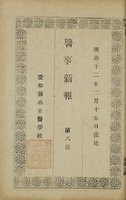 明治十二年二月十五日設定
醫事新報 第八號
愛知縣公立醫學校